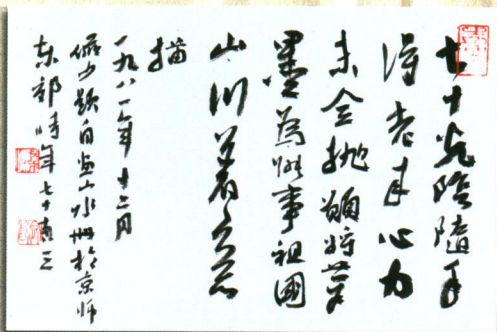 七十光陰隨手
过老来心力
未全抛頻將筆
墨為啥事祖國
山川着意
描
一九八一年十二月
题自画山水册於京师
东郊時年七十有三